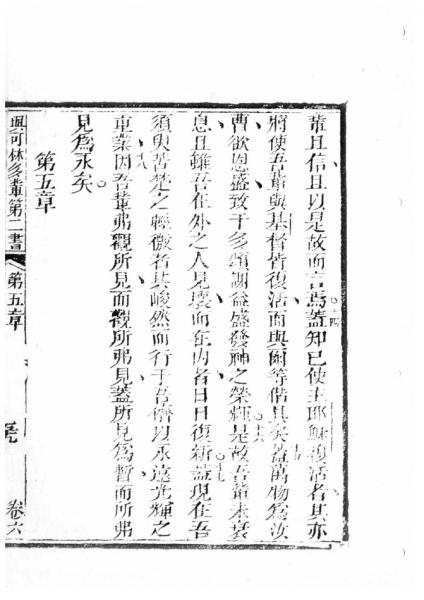 輩且信且以是故而言焉○十四蓋知已使主耶穌復活者其亦
將使吾輩與基督皆復活而與爾等偕具矣○十五蓋萬物為汝
曹欲恩盛致于多頌謝益盛發神之榮輝○十六是故吾輩未衰
息且雖吾在外之人見壞而在內者日日復新○十七蓋現在吾
須臾苦楚之輕微者其峻然而行于吾儕以永遠光輝之
重業○十八因吾輩弗觀所見而觀所弗見蓋所見為暫而所弗
見為永矣○
第五章
與可林多輩第二書 第五章 卷六